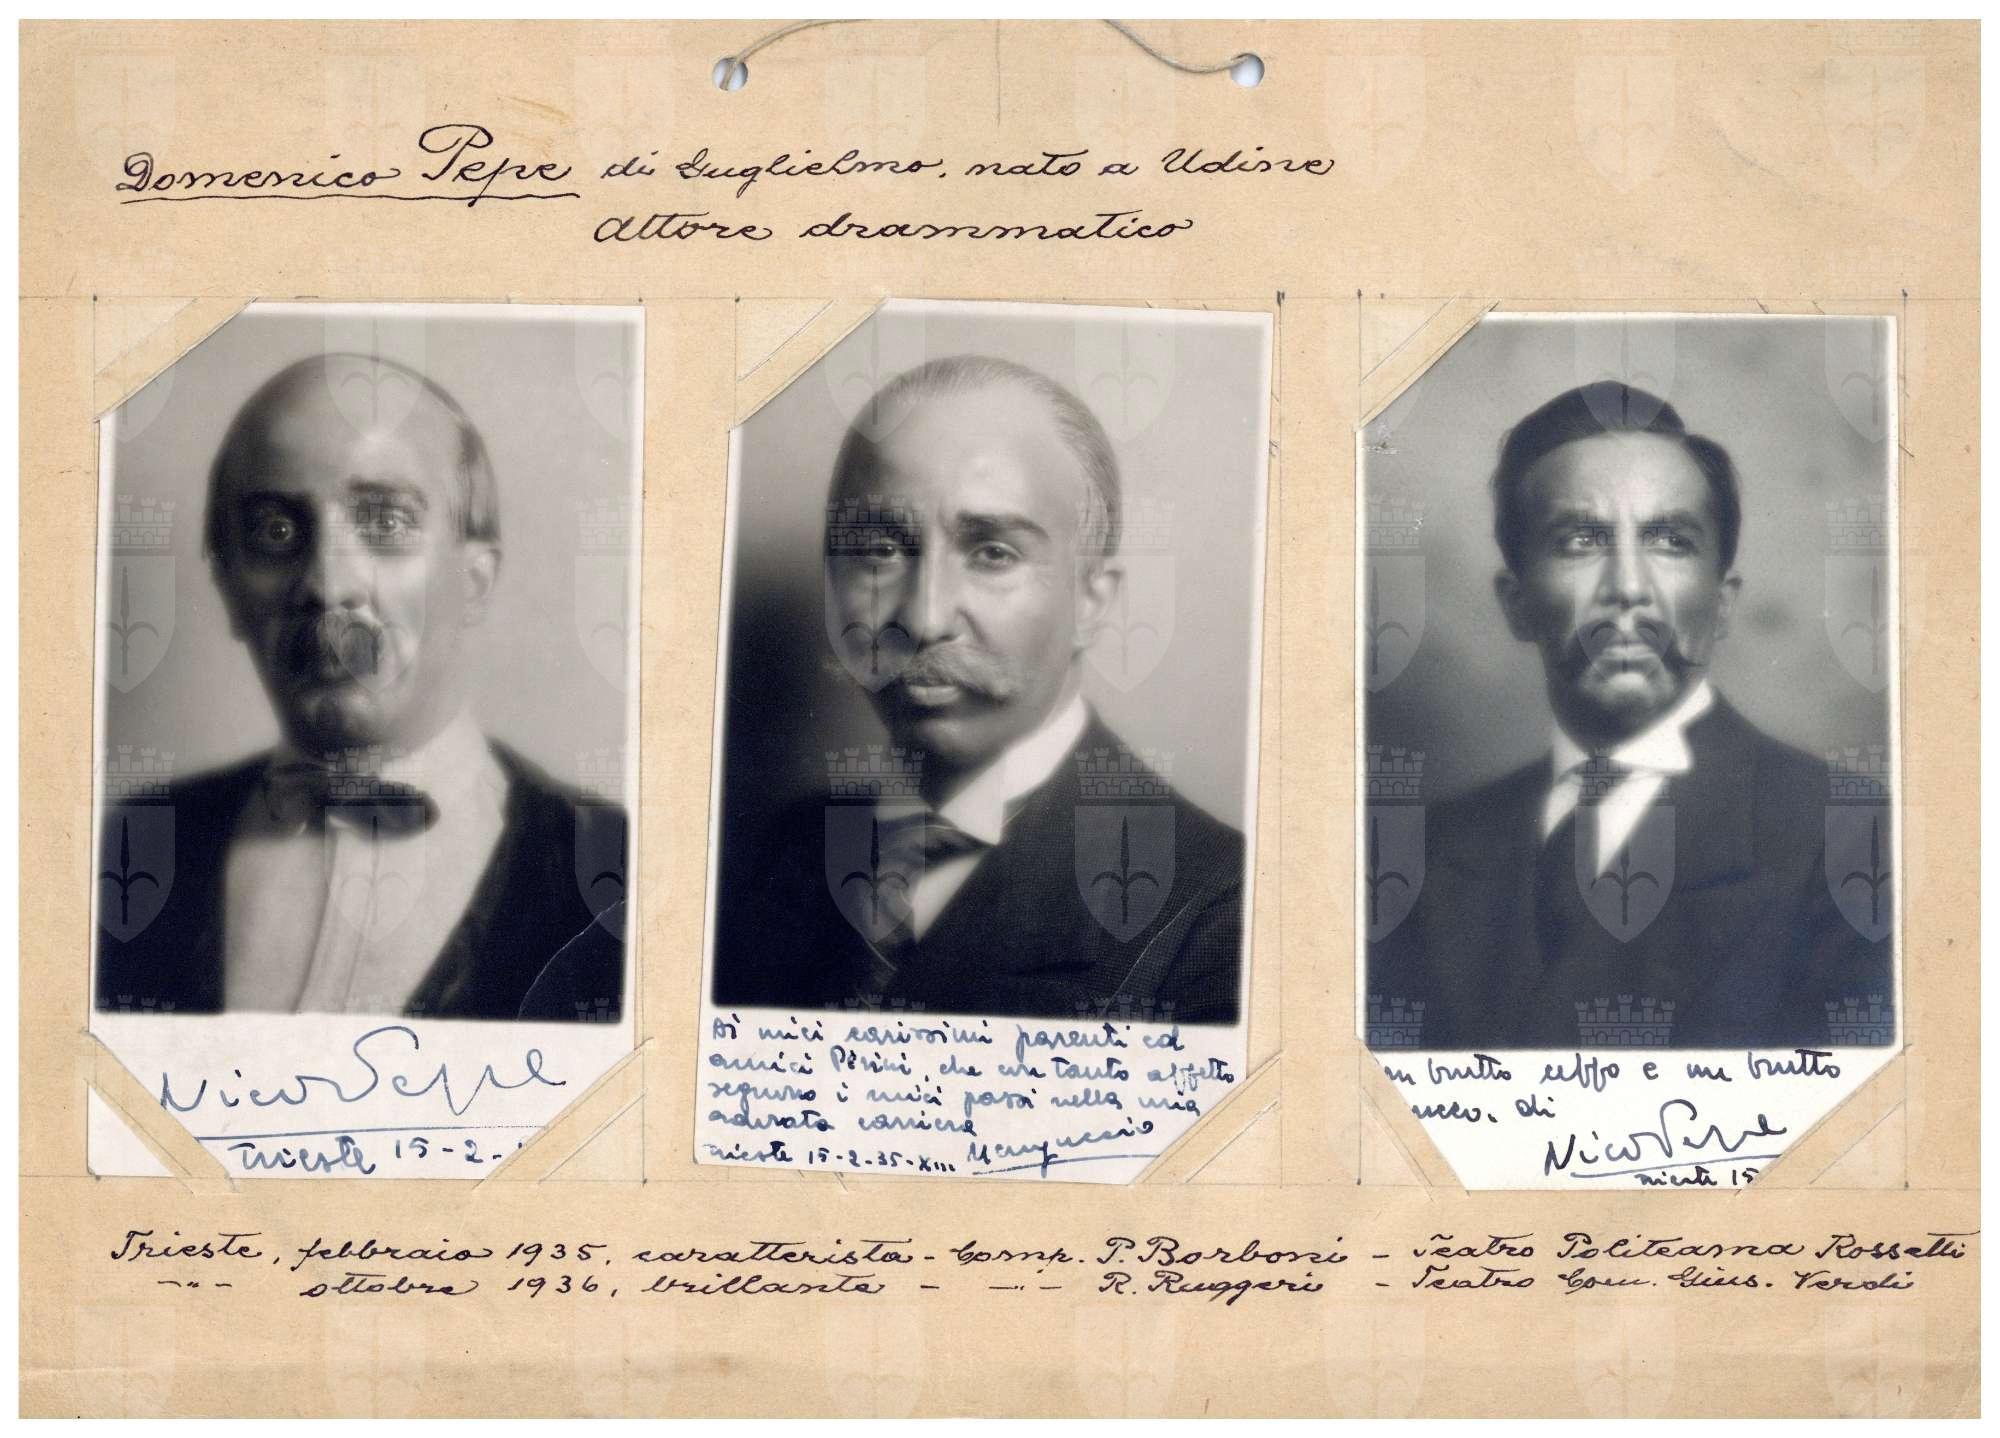 Domenico Pepe di Guglielmo, nato a Udine
Attore drammatico
Nico Pepe
Trieste 15-2-
Ai miei carissimi parenti ed
amici Pèrini, che con tanto affetto
seguono i miei passi nella mia
adorata carriera
Trieste 15-2-35-XIII
un brutto ceffo e un brutto
di
Nico Pepe
Trieste 15
Trieste, febbraio 1935, caratterista - Comp. P. Borboni - Teatro Politeama Rossetti
-"- ottobre 1936, brillante - -"- R. Ruggeri - Teatro Com. Gius. Verdi